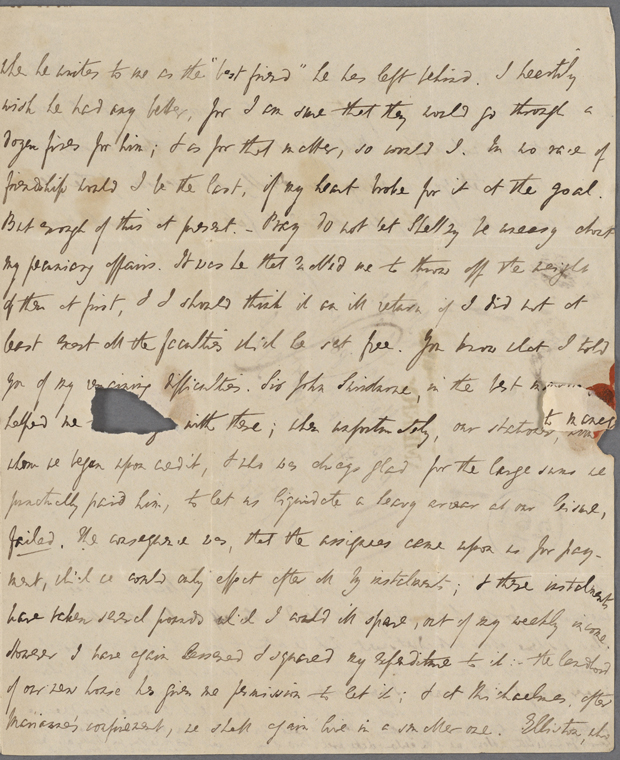 when he writes to me as the "best friend" he has left behind. I heartily
wish he had any better, for I am sure that they would go through a
dozen fires for him; & as for that matter, so would I. In no race of
friendship would I be the last, if my heart broke for it at the goal.
But enough of this at present. – Pray do not let Shelley be uneasy about
my pecuniary affairs. It was he that enabled me to throw off the weight
of them at first, & I should think it an ill return if I did not at
least exert all the faculties which he set free. You know what I told
you of my remaining difficulties. Sir John Swinburne, in the best
helped me with these; when unfortunately, our stationer,
whom we began upon credit, & who was always glad for the large sums we
punctually paid him, to let us liquidate a heavy arrear at our leisure,
failed. The consequence was, that the assignees came upon us for pay-
ment, which we could only effect after all by instalments; & these instalments
have taken several pounds which I could ill spare, out of my weekly income.
However I have again lessened & squared my expenditure to it :– the landlord
of our new house has given me permission to let it; & at Michaelmas, after
Marianne's confinement, we shall again live in a smaller one. Elliston, who